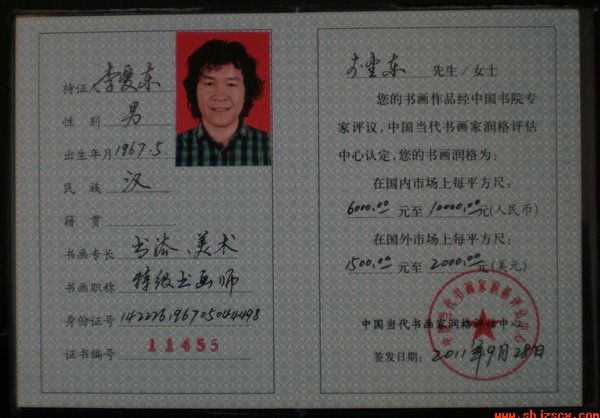 持证 李爱东
性 别 男
出生年月 1967.5.
民 族 汉
籍 贯
书画专长 书法、美术
书画职称 特级书画师
身份证号 142226196705044498
证书编号 11455
李爱东 先生/女士
您的书画作品经中国书院专
家评议,中国当代书画家润格评估
中心认定,您的书画润格为:
在国内市场上每平方尺:
6000.00 元至 10000.00 元(人民币)
在国外市场上每平方尺:
1500.00 元至 2000.00 元(美元)
中国当代书画家润格评估中心
签发日期: 2011年9月28日
www.shjzscx.com